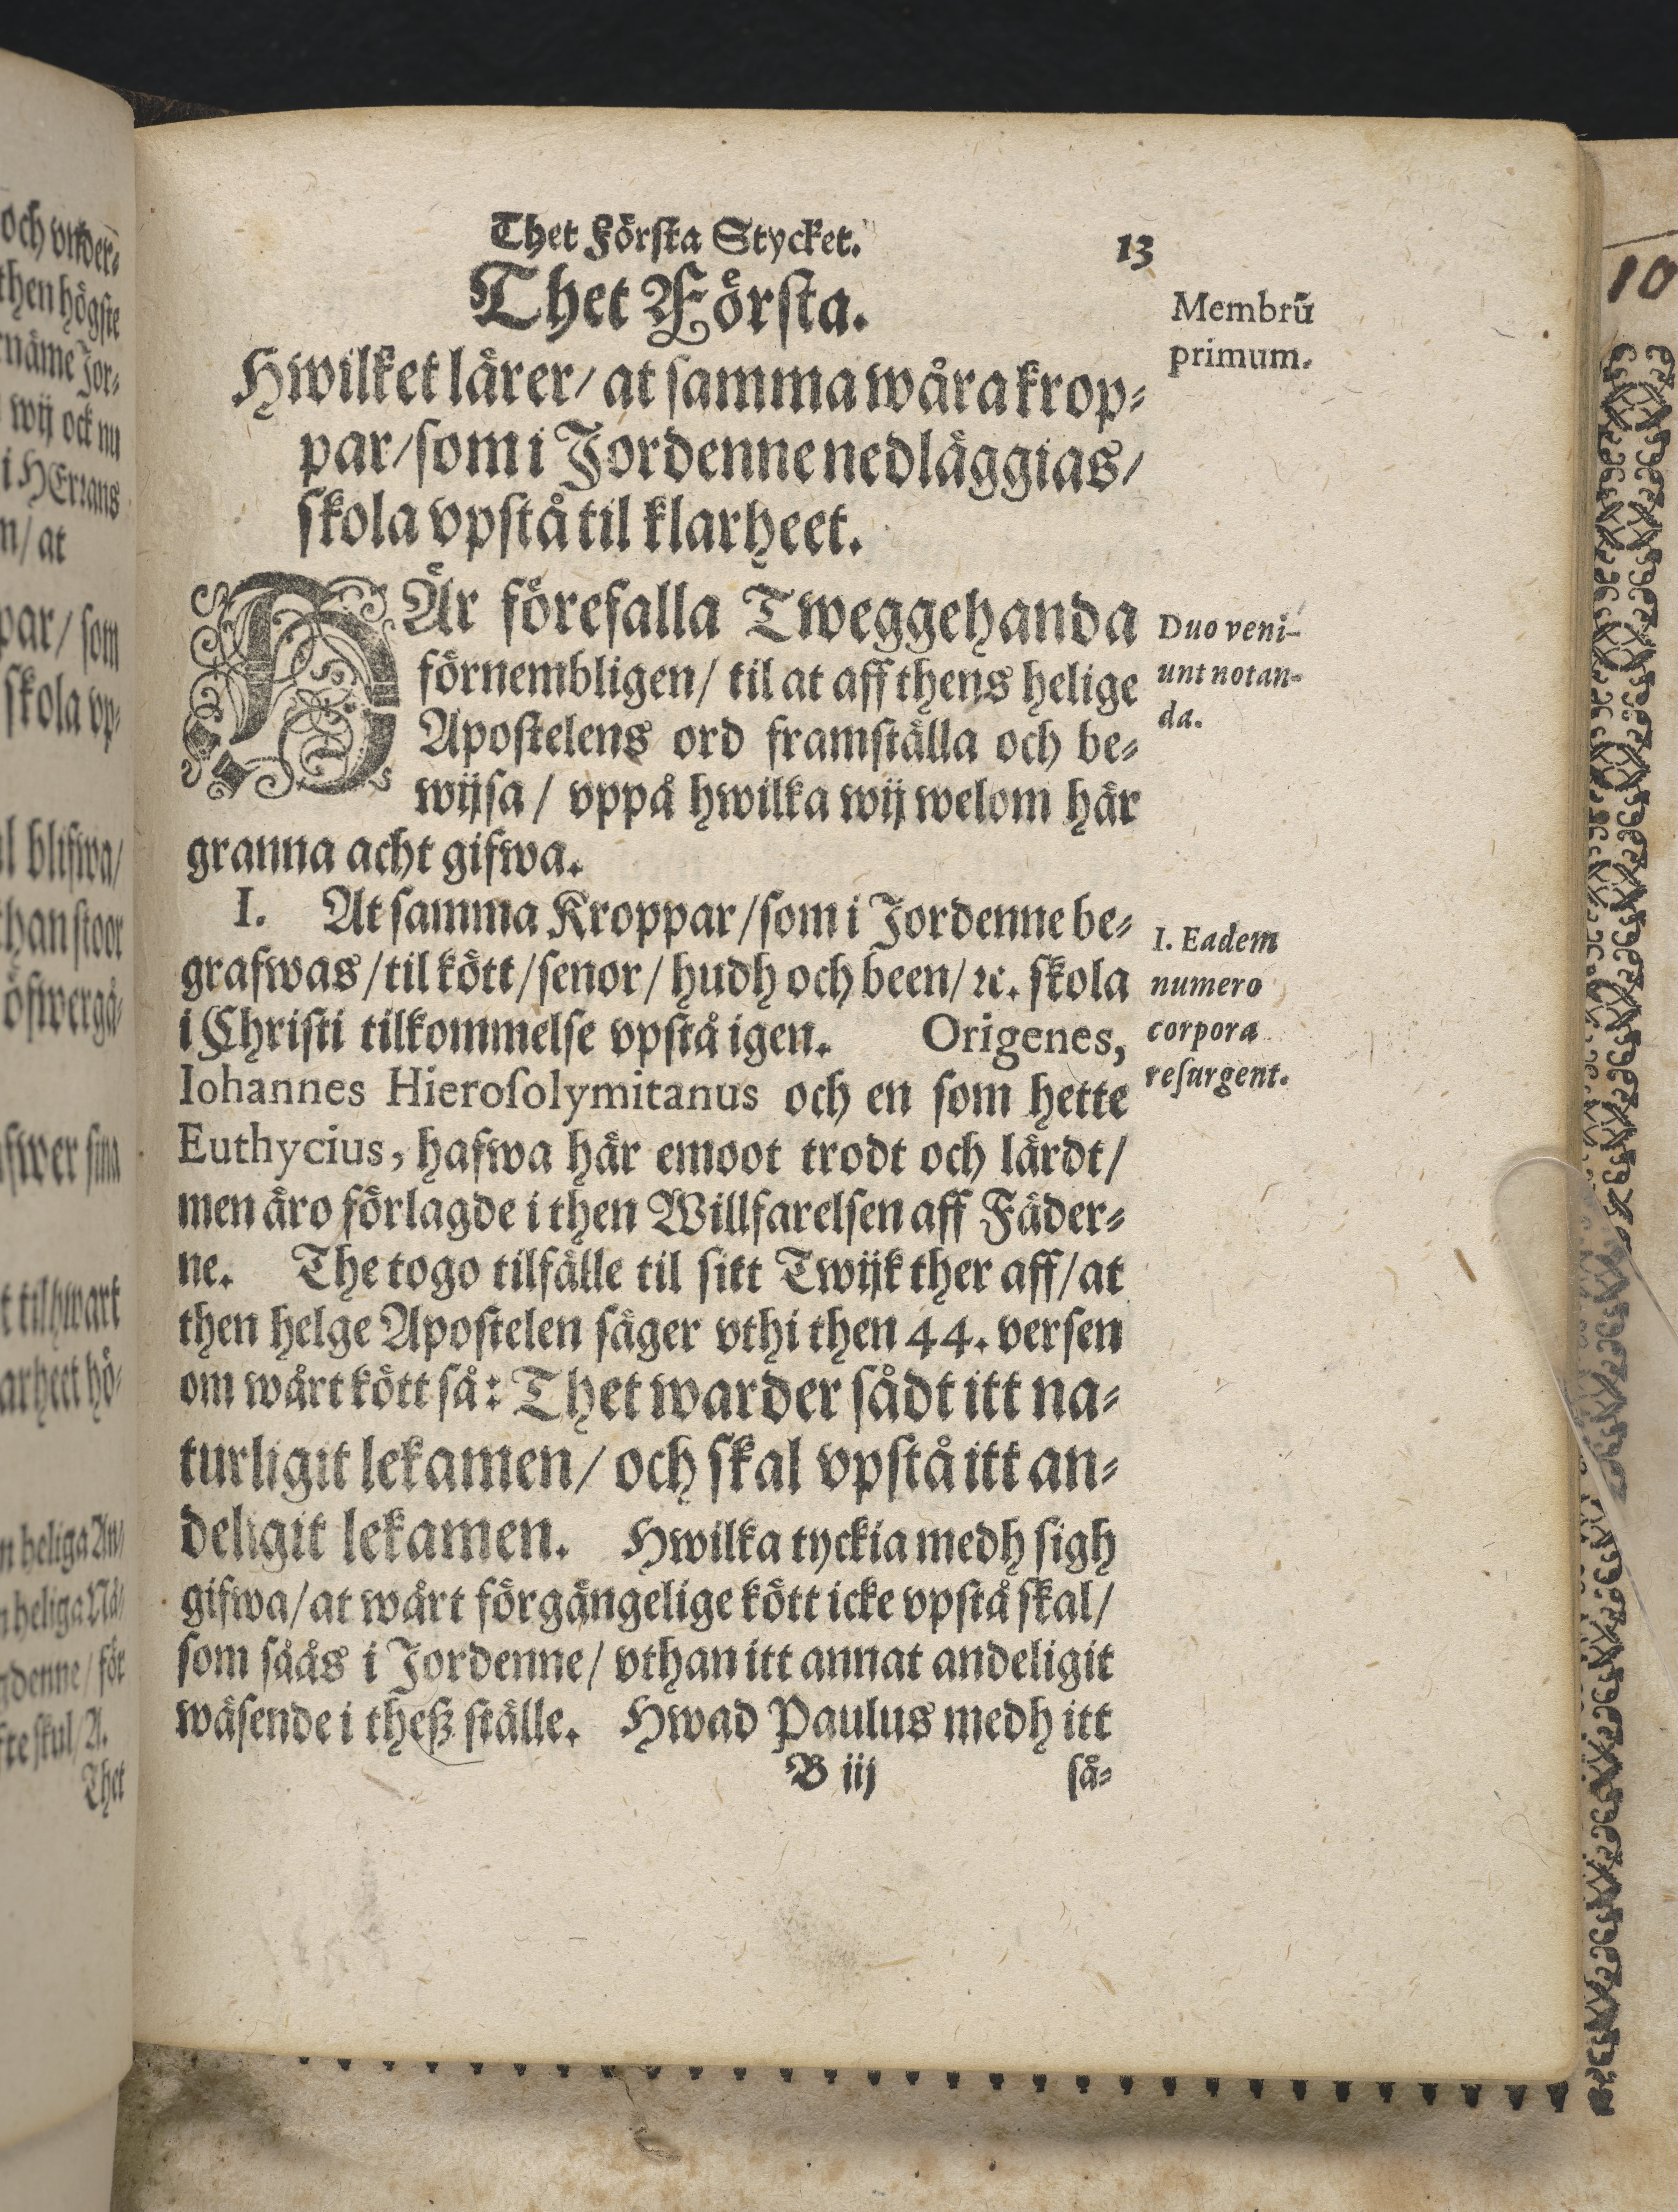 Thet Förſta Stycket. 13
Thet Förſta.
Membrū
primum.
Hwilket lärer/ at ſamma wåra krop⸗
par/ ſom i Jordenne nedläggias/
ſkola vpſtå til klarheet.
HÄr förefalla Tweggehanda
förnembligen/ til at aff thens helige
Apoſtelens ord framſtälla och be⸗
wijſa / vppå hwilka wij welom här
granna acht gifwa.
Duo veni-
unt notan-
da.
I. At ſamma Kroppar/ ſom i Jordenne be⸗
grafwas/ til kött/ ſenor/ hudh och been/ ꝛc. ſkola
i Chriſti tilkommelſe vpſtå igen. Origenes,
Iohannes Hieroſolymitanus och en ſom hette
Euthycius, hafwa här emoot trodt och lärdt/
men äro förlagde i then Willfarelſen aff Fäder⸗
ne. The togo tilfälle til ſitt Twijk ther aff/ at
then helge Apoſtelen ſäger vthi then 44. verſen
om wårt kött ſå: Thet warder ſådt itt na⸗
turligit lekamen/ och ſkal vpſtå itt an⸗
deligit lekamen. Hwilka tyckia medh ſigh
gifwa/ at wårt förgängelige kött icke vpſtå ſkal/
ſom ſåås i Jordenne/ vthan itt annat andeligit
wäſende i theß ſtälle. Hwad Paulus medh itt
I. Eadem
numero
corpora
reſurgent.
B iij ſå⸗
och vnder⸗
then högſte
näme Jor⸗
wij ock nu
i HErrans
n/ at
par/ ſom
ſkola vp⸗
l blifwa/
han ſtoor
öfwergå⸗
fwer ſina
t til hwart
arheet hö⸗
n heliga An/
heliga Nå/
gdenne/ för
ſte ſkul/ A.
Thet
10